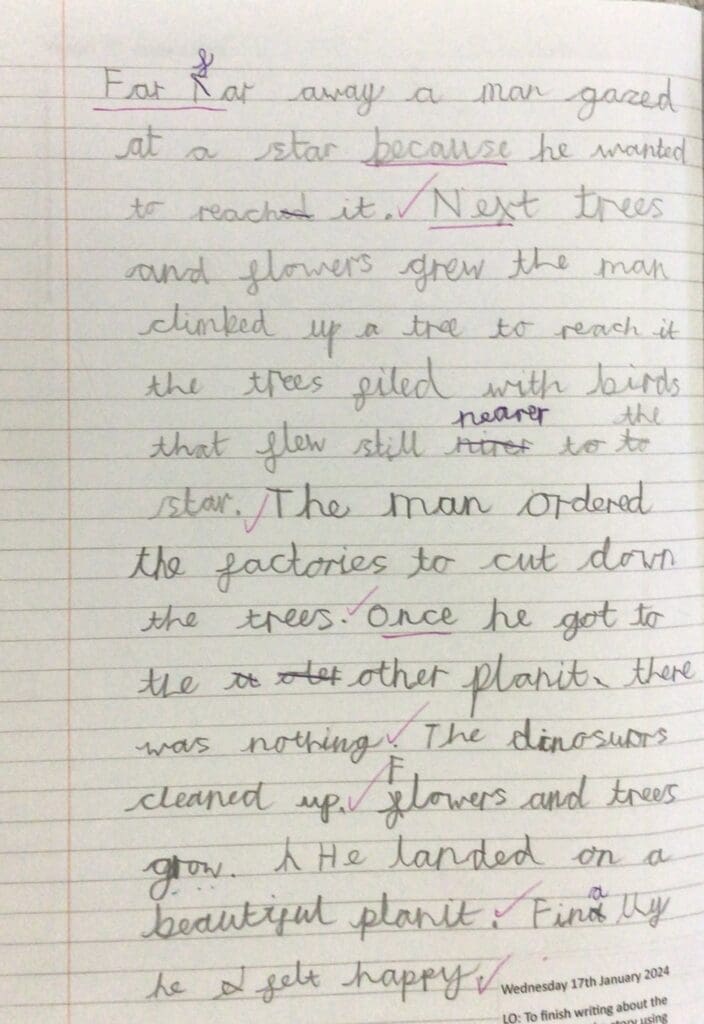 Far far away a man gazed
at a star because he wanted
to reach it. Next trees
and flowers grew the man
climbed up a tree to reach it
the trees filed with birds
nearer the
that flew still nirer to to
star. The man ordered
the factories to cut down
the trees. Once he got to
the other planit, there
was nothing. The dinosuors
cleaned up. Flowers and trees
grow. He landed on a
beautiful planit. Finally
he felt happy.
Wednesday 17th January 2024
LO: To finish writing about the
story using